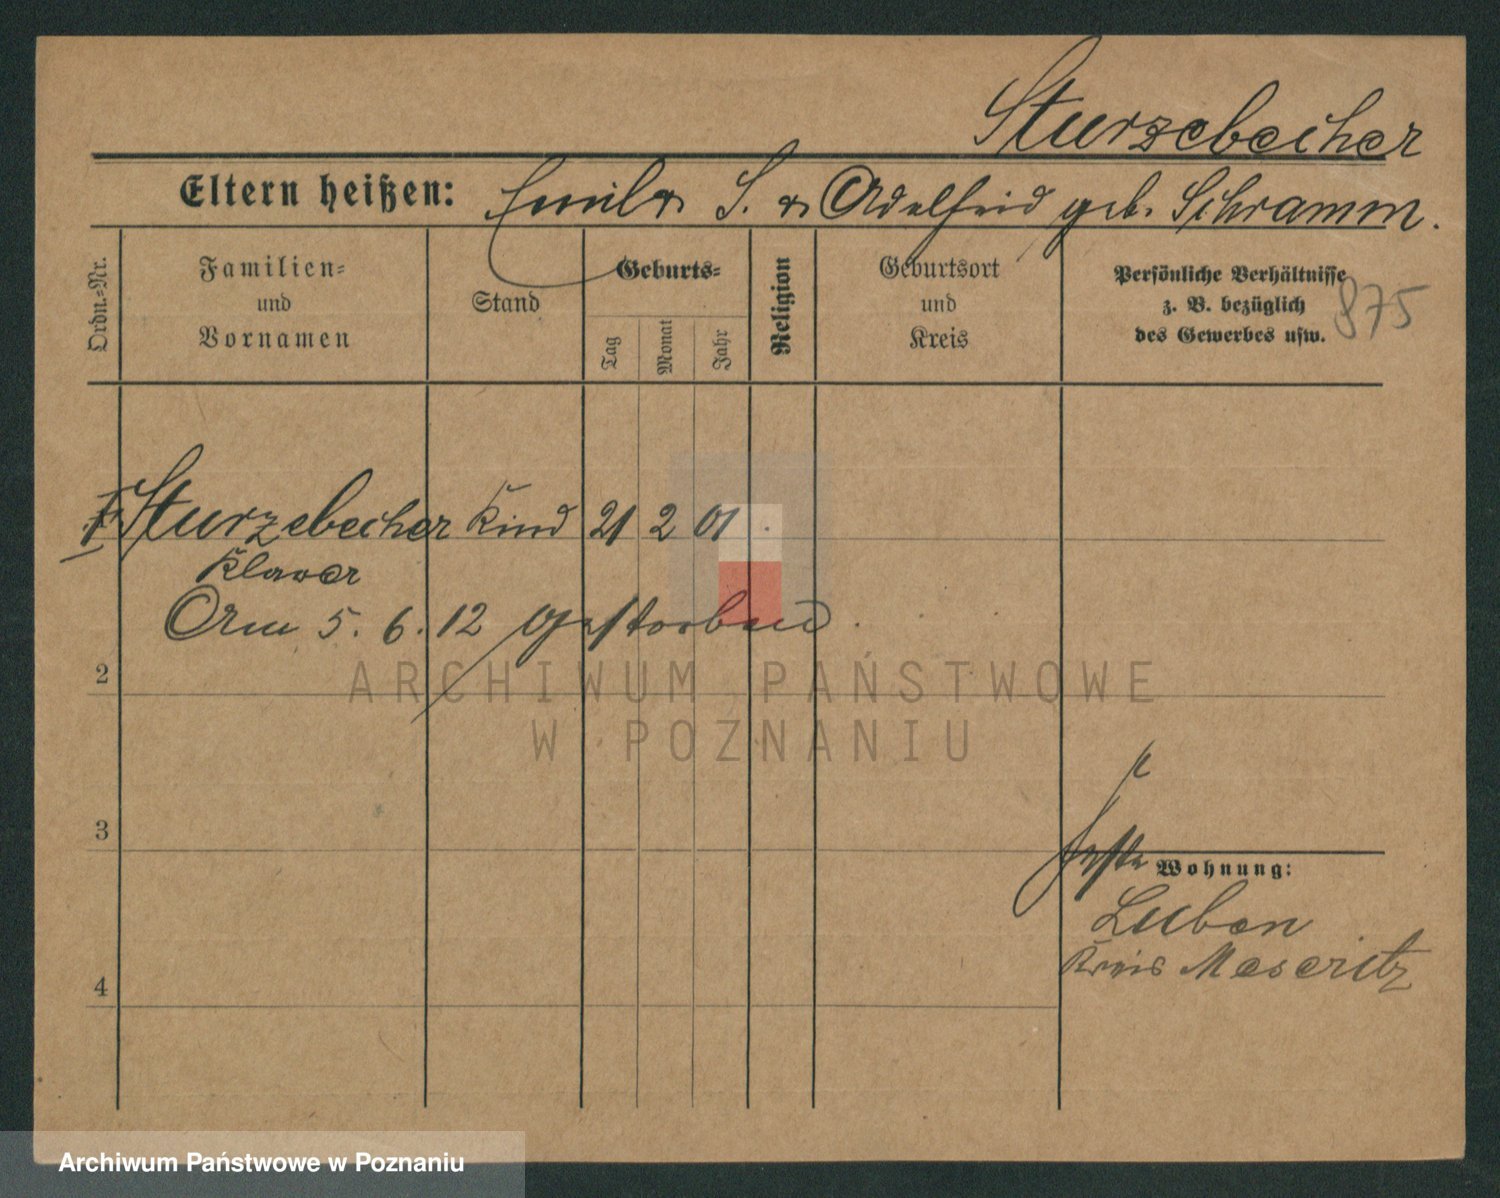 Sturzebecher
Eltern heißen: Emil S. u. Adelheid geb. Schramm.
Ordn.-Nr.
Familien-
und
Vornamen
Stand
Geburts-
Tag
Monat
Jahr
Religion
Geburtsort
und
Kreis
Persönliche Verhältnisse
z. B. bezüglich
des Gewerbes usw.
875
1 Sturzebecher Kind 21 2 01
Am 5. 6. 12 gestorben.
2
ARCHIWUM PAŃSTWOWE
W POZNANIU
3
Wohnung:
Luben
Kreis Meseritz
4
Archiwum Państwowe w Poznaniu